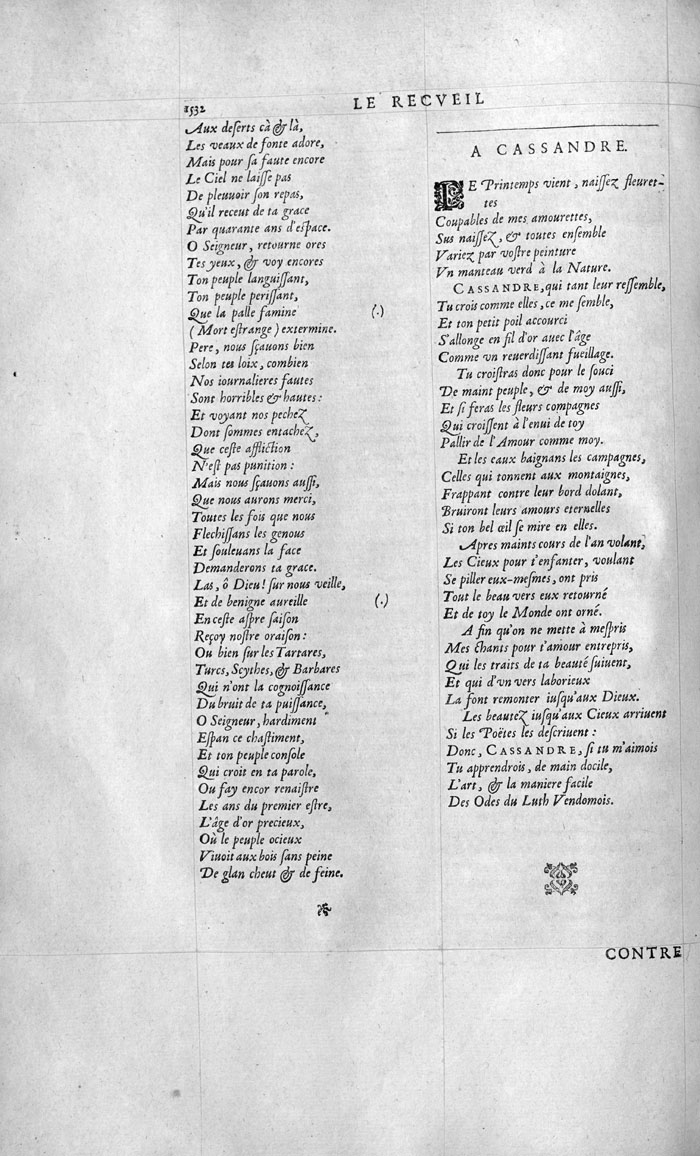 1532
LE RECVEIL
Aux deserts cà & là,
Les veaux de fonte adore,
Mais pour sa faute encore
Le Ciel ne laisse pas
De pleuuoir son repas,
Qu'il receut de ta grace
Par quarante ans d'espace.
O Seigneur, retourne ores
Tes yeux, & voy encores
Ton peuple languissant,
Ton peuple perissant,
Que la palle famine (.)
(Mort estrange) extermine.
Pere, nous sçauons bien
Selon tes loix, combien
Nos iournalieres fautes
Sont horribles & hautes:
Et voyant nos pechez
Dont sommes entachez,
Que ceste affliction
N'est pas punition:
Mais nous sçauons aussi,
Que nous aurons merci,
Toutes les fois que nous
Flechissans les genous
Et souleuans la face
Demanderons ta grace.
Las, ô Dieu! sur nous veille,
Et de benigne aureille (.)
En ceste aspre saison
Reçoy nostre oraison:
Ou bien sur les Tartares,
Turcs, Scythes, & Barbares
Qui n'ont la cognoissance
Du bruit de ta puissance,
O Seigneur, hardiment
Espan ce chastiment,
Et ton peuple console
Qui croit en ta parole,
Ou fay encor renaistre
Les ans du premier estre,
L'âge d'or precieux,
Où le peuple ocieux
Viuoit aux bois sans peine
De glan cheut & de feine.
A CASSANDRE.
LE Printemps vient, naissez fleuret-
tes
Coupables de mes amourettes,
Sus naissez, & toutes ensemble
Variez par vostre peinture
Vn manteau verd à la Nature.
CASSANDRE, qui tant leur ressemble,
Tu crois comme elles, ce me semble,
Et ton petit poil accourci
S'allonge en fil d'or auec l'âge
Comme vn reuerdissant fueillage.
Tu croistras donc pour le souci
De maint peuple, & de moy aussi,
Et si feras les fleurs compagnes
Qui croissent à l'enui de toy
Pallir de l'Amour comme moy.
Et les eaux baignans les campagnes,
Celles qui tonnent aux montaignes,
Frappant contre leur bord dolant,
Bruiront leurs amours eternelles
Si ton bel œil se mire en elles.
Apres maints cours de l'an volant,
Les Cieux pour t'enfanter, voulant
Se piller eux-mesmes, ont pris
Tout le beau vers eux retourné
Et de toy le Monde ont orné.
A fin qu'on ne mette à mespris
Mes chants pour t'amour entrepris,
Qui les traits de ta beauté suiuent,
Et qui d'vn vers laborieux
La font remonter iusqu'aux Dieux.
Les beautez iusqu'aux Cieux arriuent
Si les Poëtes les descriuent:
Donc, CASSANDRE, si tu m'aimois
Tu apprendrois, de main docile,
L'art, & la maniere facile
Des Odes du Luth Vendomois.
CONTRE